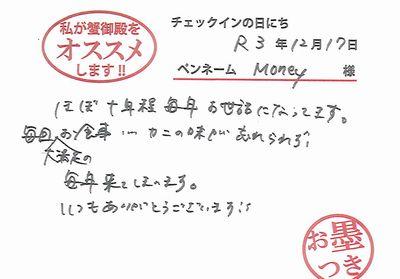 私が蟹御殿を
オススメ
します!!
チェックインの日にち
R3年12月17日
ペンネーム Money 様
ほぼ十年程 毎年 お世話になってます。
大満足の
毎回 お食事 カニの味が忘れられず
毎年 来てしまいます。
いつもありがとうございます!!
お墨
つき